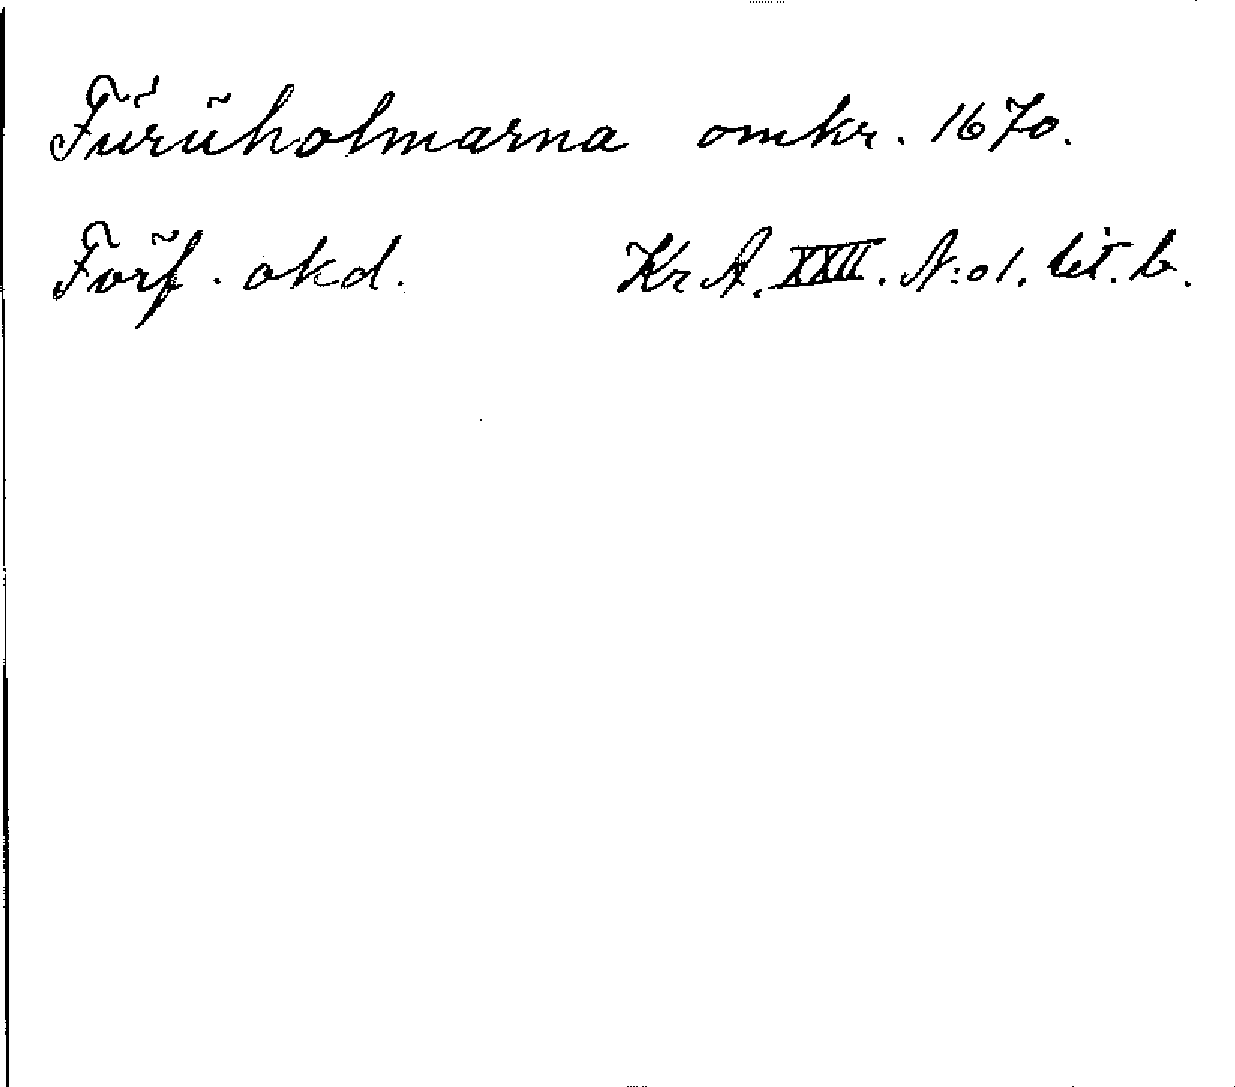 Furuholmarna omkr. 1670.
Förf. okd. Kr A. XXII. N:o 1. lit. b.